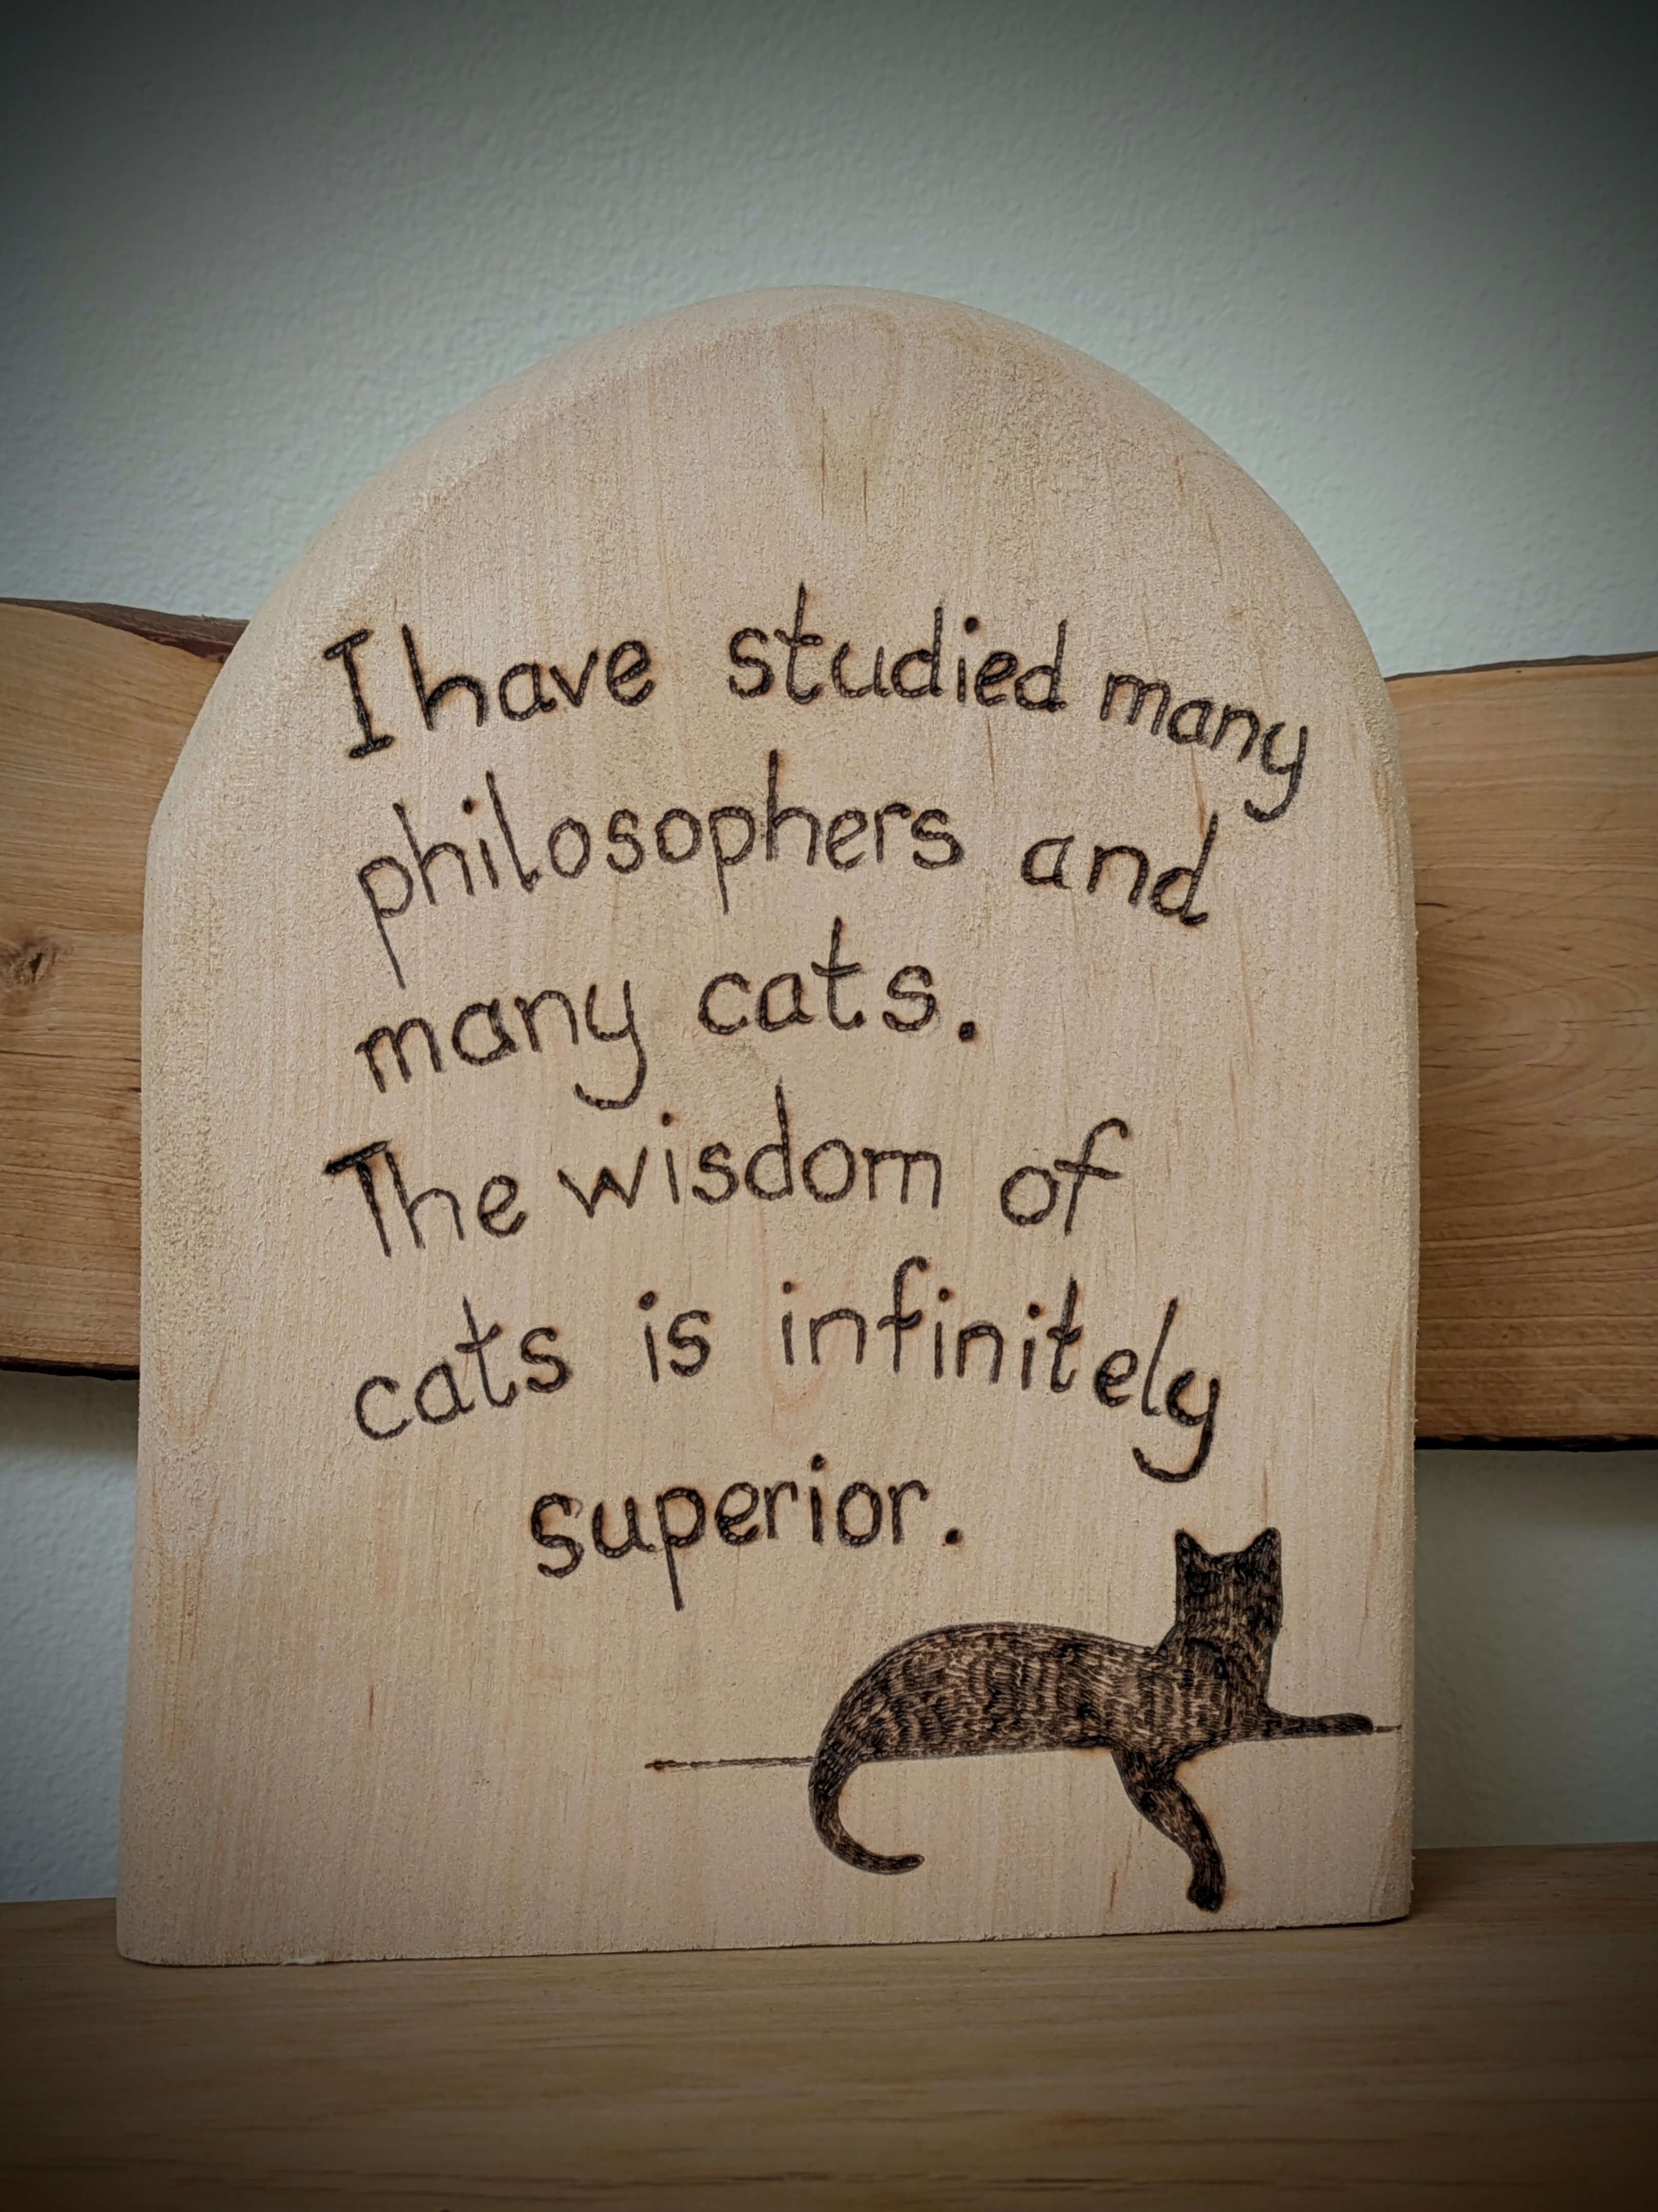 I have studied many
philosophers and
many cats.
The wisdom of
cats is infinitely
superior.